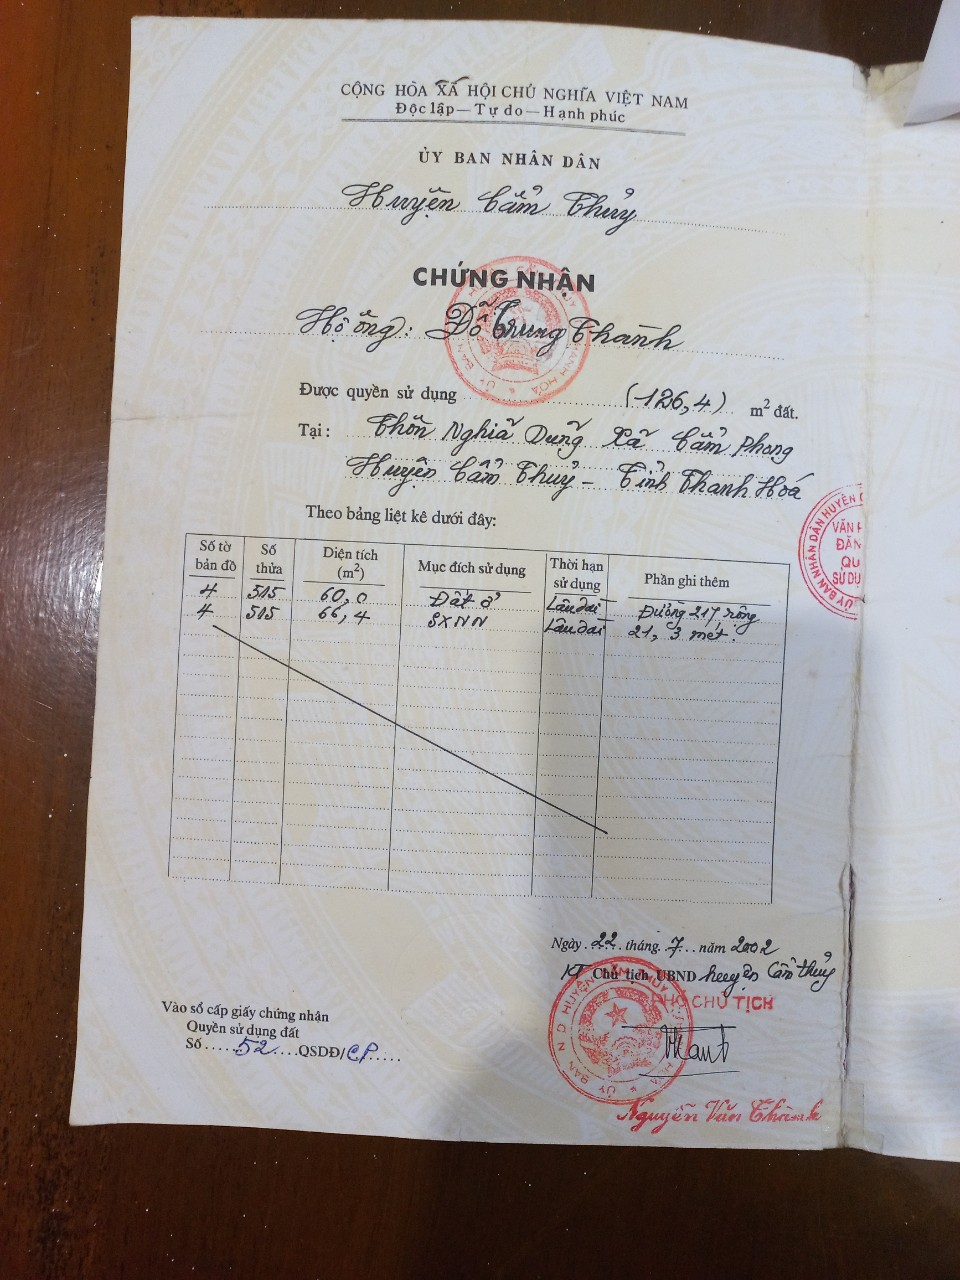 CỘNG HÒA XÃ HỘI CHỦ NGHĨA VIỆT NAM
Độc lập — Tự do — Hạnh phúc
ỦY BAN NHÂN DÂN
Huyện Cẩm Thủy
CHỨNG NHẬN
Hộ ông: Đỗ Trung Thành
Được quyền sử dụng (126,4) m² đất.
Tại: Thôn Nghĩa Dũng Xã Cẩm Phong
Huyện Cẩm Thủy – Tỉnh Thanh Hoá
Theo bảng liệt kê dưới đây:
Số tờ bản đồ Số thửa Diện tích (m²) Mục đích sử dụng Thời hạn sử dụng Phần ghi thêm
4 515 60,0 Đất ở Lâu dài Đường 217 rộng
4 515 66,4 SXNN Lâu dài 21,3 mét.
ỦY BAN NHÂN DÂN HUYỆN
VĂN
ĐĂN
QU
SỬ DỤ
Ngày 22 tháng 7 năm 2002
KT Chủ tịch UBND huyện Cẩm Thủy
PHÓ CHỦ TỊCH
Nguyễn Văn Thành
Vào sổ cấp giấy chứng nhận
Quyền sử dụng đất
Số 52 QSDĐ/CP